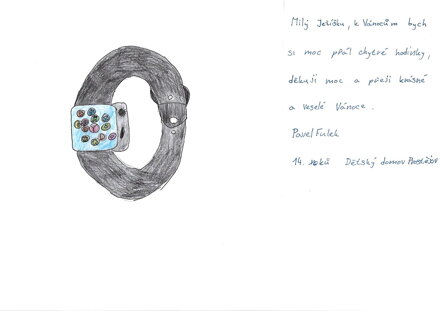 Milý Ježíšku, k Vánocům bych
si moc přál chytré hodinky,
děkuji moc a přeji krásné
a veselé Vánoce.
Pavel Fulek
14. roků Dětský domov Prostějov